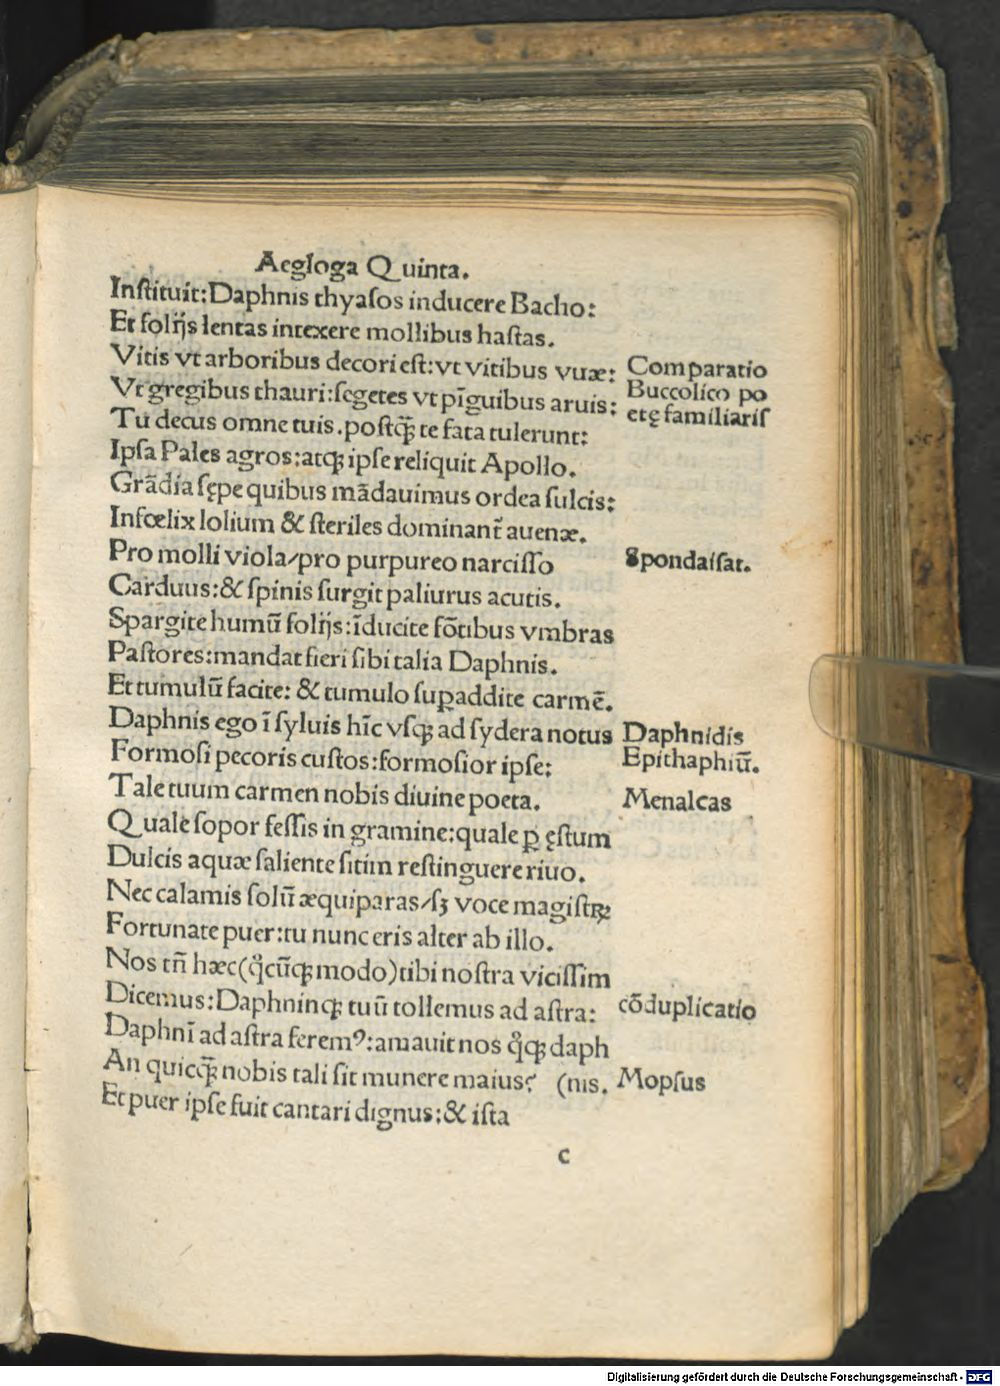 Aegloga Quinta.
Inſtituit: Daphnis thyaſos inducere Bacho:
Et folijs lentas intexere mollibus haſtas.
Vitis vt arboribus decori eſt: vt vitibus vuæ: Comparatio
Vt gregibus thauri: ſegetes vt pīguibus aruis: Buccolico po
Tu decus omne tuis. poſtꝗ̄ te fata tulerunt: etę familiariſ
Ipſa Pales agros: atqꝫ ipſe reliquit Apollo.
Grādia ſępe quibus mādauimus ordea ſulcis:
Infœlix lolium & ſteriles dominant᷑ auenæ.
Pro molli viola/pro purpureo narciſſo Spondaiſat.
Carduus: & ſpinis ſurgit paliurus acutis.
Spargite humū folijs: īducite fōtibus vmbras
Paſtores: mandat fieri ſibi talia Daphnis.
Et tumulū facite: & tumulo ſuꝑaddite carmē.
Daphnis ego ī ſyluis hīc vſqꝫ ad ſydera notus Daphnidis
Formoſi pecoris cuſtos: formoſior ipſe: Epithaphiū.
Tale tuum carmen nobis diuine poeta. Menalcas
Quale ſopor feſſis in gramine: quale ꝑ ęſtum
Dulcis aquæ ſaliente ſitim reſtinguere riuo.
Nec calamis ſolū æquiparas/ſꝫ voce magiſtꝝ
Fortunate puer: tu nunc eris alter ab illo.
Nos tn̄ hæc (q̊cūqꝫ modo) tibi noſtra viciſſim
Dicemus: Daphninqꝫ tuū tollemus ad aſtra: cōduplicatio
Daphnī ad aſtra feremꝰ: amauit nos q̊qꝫ daph
An quicꝗ̄ nobis tali ſit munere maius? (nis. Mopſus
Et puer ipſe fuit cantari dignus: & iſta
c
Digitalisierung gefördert durch die Deutsche Forschungsgemeinschaft - DFG